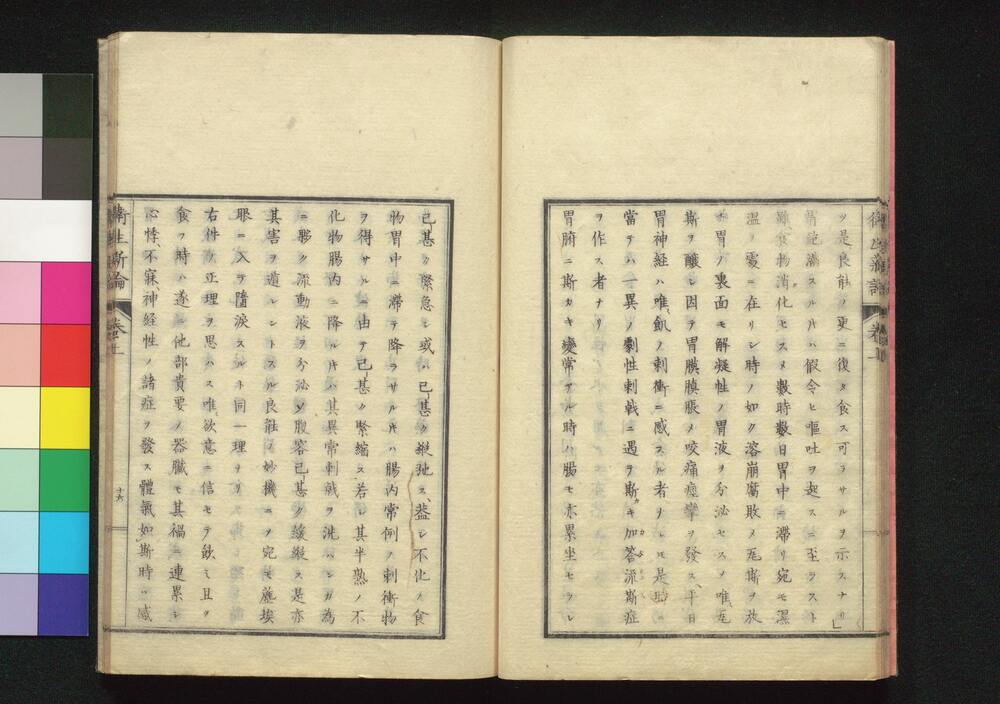 ツ是、良能ノ更ニ復タ食ス可ラサルヲ示スナリ」
胃飽滿スル片ハ假令ヒ嘔吐ヲ起スニ至ラスト
雖、食物消化セスメ數時數日胃中ニ滯リ宛モ濕
温ノ處ニ在リシ時ノ如ク溶崩腐敗メ瓦斯ヲ放
チ胃ノ裏面モ解凝性ノ胃液ヲ分泌セスメ唯、瓦
斯ヲ釀シ因テ胃膜膨脹メ咬痛痙攣ヲ發ス、平日
胃神経ハ唯、飢ノ刺衝ニ感スル者ナレ𪜈是時ニ
當テハ一異ノ劇性刺戟ニ遇ヲ斯カキ加答流斯症
ヲ作ス者ナリ
胃腑ニ斯カキ變常アル時ハ腸モ亦累坐セラレ
衛生新論
卷上
十六
己甚ク緊急シ或ハ己甚ク縱弛ス、蓋シ不化ノ食
物胃中ニ滯テ降ラサル片ハ腸内常例ノ刺衝物
ヲ得サルニ由テ己甚ク緊縮ス若シ其半熟ノ不
化物腸内ニ降ル片ハ其異常刺戟ヲ洗ハンガ為
ニ夥ク流動液ヲ分泌ソ腹容己甚ク緩縱ス是亦
其害ヲ遁レントスル良能ノ妙機ニヲ宛モ塵埃
眼ニ入ラ墮涙スルト同一理ナリ
右件ノ正理ヲ思ハス唯、欲意ニ信セテ飲ミ且ツ
食フ時ハ遂ニ他部貴要ノ器臓モ其禍ニ連累シ
心悸、不寐、神経性ノ諸症ヲ發ス體氣如斯時ハ感